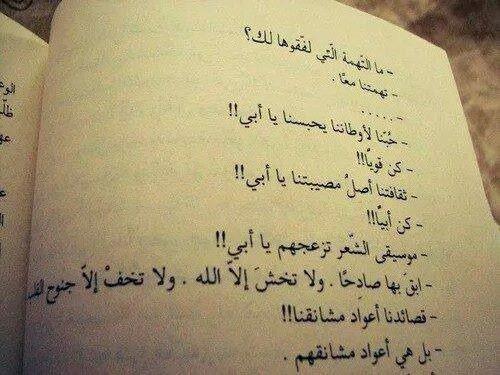 - ما التّهمة الّتي لفّقوها لك؟
- تهمتنا معًا .
- . . . . .
- حُبّنا لأوطاننا يحبسنا يا أبي!!
- كن قويًّا!!
- ثقافتنا أصلُ مصيبتنا يا أبي!!
- كن أبيًّا!!
- موسيقى الشّعر تزعجهم يا أبي!!
- ابقَ بها صادِحًا . ولا تخشَ إلاّ الله . ولا تخفْ إلاّ جنوح
- قصائدنا أعواد مشانقنا!!
- بل هي أعواد مشانقهم .